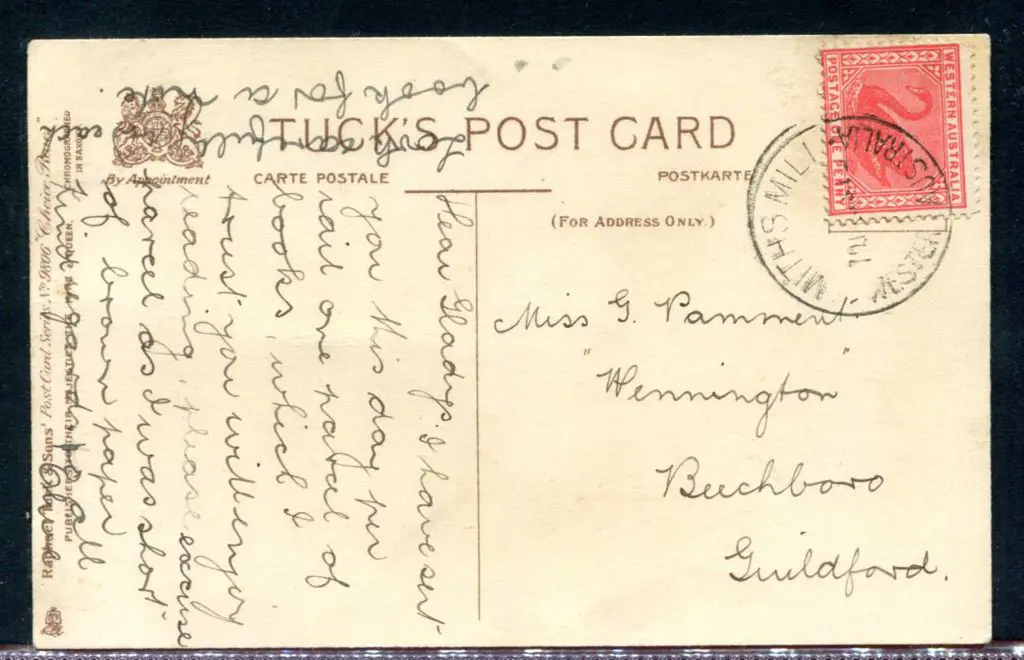 TUCK'S POST CARD
By Appointment
CARTE POSTALE
POSTKARTE
(FOR ADDRESS ONLY.)
CHROMOGRAPHED
IN SAXONY
WESTERN AUSTRALIA
POSTAGE ONE PENNY
SMITHS MILL
WESTERN AUSTRALIA
Miss G. Pamment.
"Wennington"
Beechboro
Guildford.
Dear Gladys. I have sent
you this day per
rail one parcel of
books, which I
trust you will enjoy
reading, please excuse
parcel as I was short
of brown paper
Kind regards to all
Look carefully in each
book for a note.
Raphael Tuck & Sons' Post Card Series No. 9806